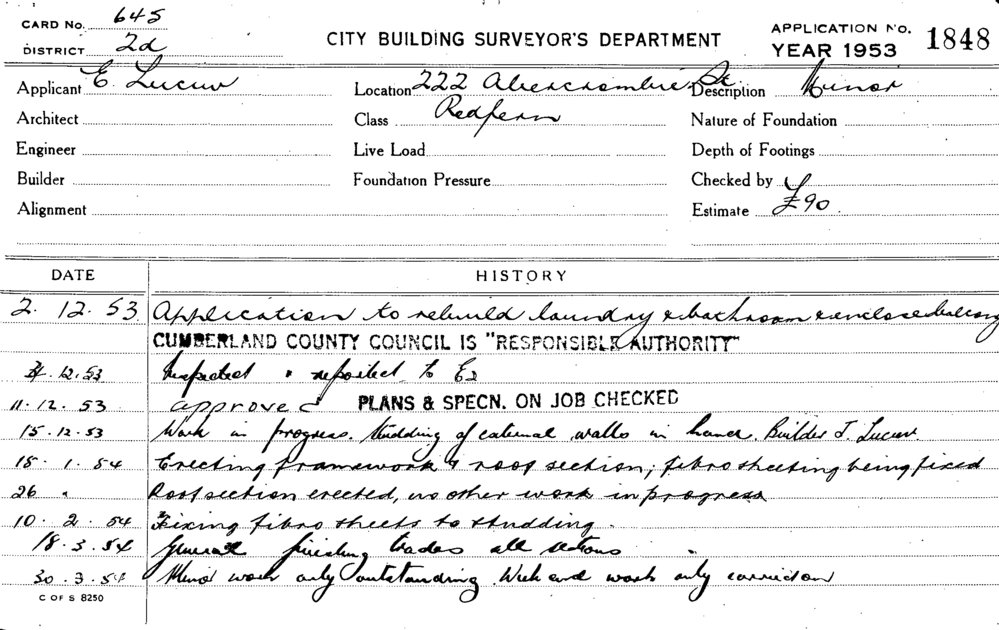 CARD No. 645
DISTRICT 2d
CITY BUILDING SURVEYOR'S DEPARTMENT
APPLICATION No. 1848
YEAR 1953
Applicant E. Lucuv Location 222 Abercrombie St Description Minor
Architect Class Redfern Nature of Foundation
Engineer Live Load Depth of Footings
Builder Foundation Pressure Checked by
Alignment Estimate £90
DATE HISTORY
2. 12. 53 Application to rebuild laundry & bathroom & enclose balcony
CUMBERLAND COUNTY COUNCIL IS "RESPONSIBLE AUTHORITY"
12.53 Inspected & reported to
11. 12. 53 approved PLANS & SPECN. ON JOB CHECKED
15.12.53 Work in progress. Studding of external walls in hand. Builder J. Lucuv.
18. 1. 54 Erecting framework & roof section; fibro sheeting being fixed
26 " Roof section erected, no other work in progress
10. 2. 54 Fixing fibro sheets to studding.
18.3.54 General finishing trades all sections
30.3.54 Minor work only outstanding. Week end work only carried on
C OF S 8250